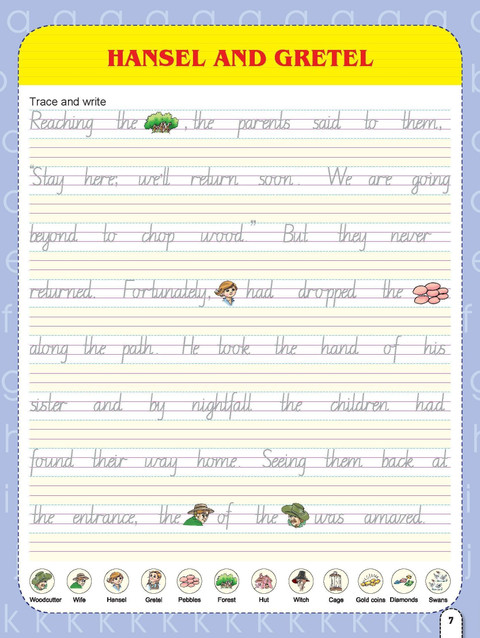 HANSEL AND GRETEL
Trace and write
Reaching the , the parents said to them,
"Stay here; we'll return soon. We are going
beyond to chop wood." But they never
returned. Fortunately, had dropped the
along the path. He took the hand of his
sister and by nightfall the children had
found their way home. Seeing them back at
the entrance, the of the was amazed.
Woodcutter Wife Hansel Gretel Pebbles Forest Hut Witch Cage Gold coins Diamonds Swans
7